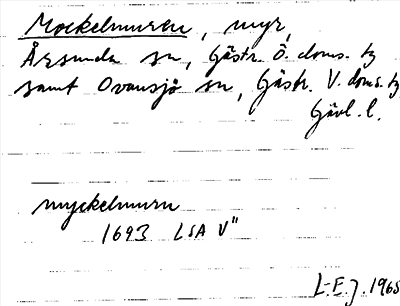 Mockelmuren, myr,
Årsunda sn, Gästr. Ö. doms. tg
samt Ovansjö sn, Gästr. V. doms. tg
Gävl. l.
myckelmurn
1693 LSA V"
L-E.J. 1968